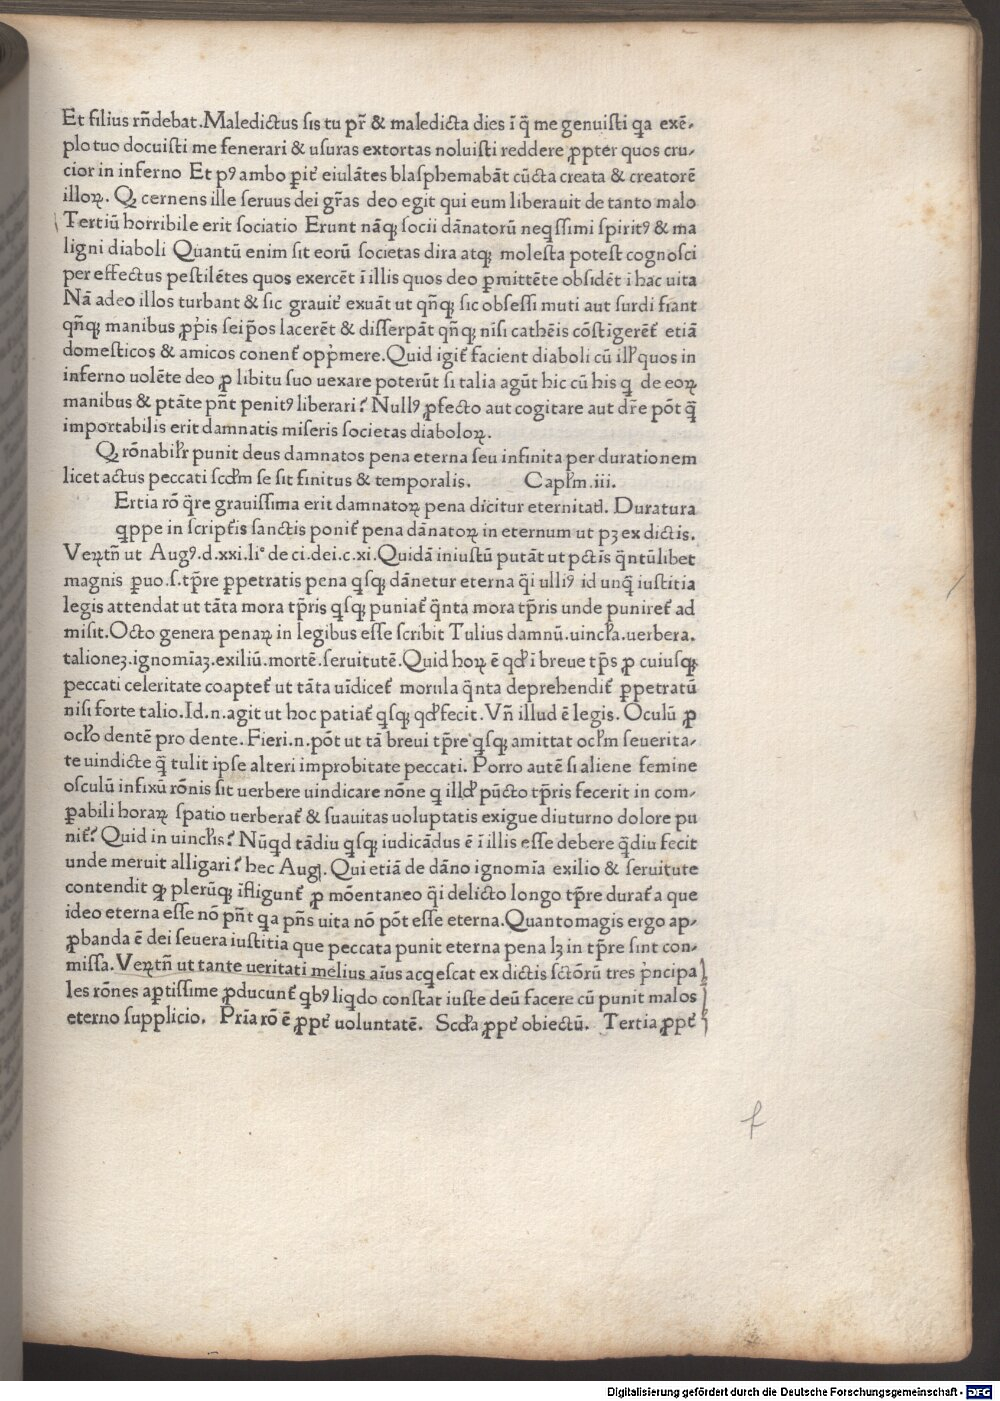 Et filius rñdebat.Maledictus ſis tu pr̃ & maledicta dies ĩ q̃ me genuiſti qa exẽ-
plo tuo docuiſti me fenerari & uſuras extortas noluiſti reddere ꝓpter quos cru-
cior in inferno Et pꝰ ambo ꝑit᷑ eiulãtes blaſphemabãt cũcta creata & creatorẽ
illoꝝ. Q, cernens ille ſeruus dei gr̃as deo egit qui eum liberauit de tanto malo
Tertiũ horribile erit ſociatio Erunt nãqꝫ ſocii dãnatorũ neqſſimi ſpiritꝰ & ma
ligni diaboli Quantũ enim ſit eorũ ſocietas dira atqꝫ moleſta poteſt cognoſci
per effectus peſtilẽtes quos exercẽt ĩ illis quos deo ꝑmittẽte obſidẽt i hac uita
Nã adeo illos turbant & ſic grauit᷑ exuãt ut qñqꝫ ſic obſeſſi muti aut ſurdi fiant
qñqꝫ manibus ꝓpͥis ſeip̃os lacerẽt & diſſerpãt qñqꝫ niſi cathẽis cõſtigerẽt᷑ etiã
domeſticos & amicos conent᷑ oppͥmere.Quid igit᷑ facient diaboli cũ illꝭ quos in
inferno uolẽte deo ꝓ libitu ſuo uexare poterũt ſi talia agũt hic cũ his q de eoꝝ
manibus & ptãte pñt penitꝰ liberari? Nullꝰ ꝓfecto aut cogitare aut dr̃e põt q̃
importabilis erit damnatis miſeris ſocietas diaboloꝝ.
Q, rõnabilꝭr punit deus damnatos pena eterna ſeu infinita per durationem
licet actus peccati ſcd̓m ſe ſit finitus & temporalis. Capl̓m.iii.
Ertia rõ q̃re grauiſſima erit damnatoꝝ pena dicitur eternitatꝭ. Duratura
qppe in ſcript᷑is ſanctis ponit᷑ pena dãnatoꝝ in eternum ut pꝫ ex dictis.
Veꝝtñ ut Augꝰ.d.xxi.li° de ci.dei.c.xi.Quidã iniuſtũ putãt ut pctĩs q̃ntũlibet
magnis ꝑuo.ſ.tp̃re ꝑpetratis pena qſqꝫ dãnetur eterna q̃ſi ulliꝰ id unq̃ iuſtitia
legis attendat ut tãta mora tp̃ris qſqꝫ puniat᷑ q̃nta mora tp̃ris unde puniret᷑ ad
miſit.Octo genera penaꝝ in legibus eſſe ſcribit Tulius damnũ.uincl̓a.uerbera.
talioneꝫ.ignomĩaꝫ.exiliũ.mortẽ.ſeruitutẽ.Quid hoꝝ ẽ qd̓ ĩ breue tp̃s ꝓ cuiuſqꝫ
peccati celeritate coaptet᷑ ut tãta uĩdicet᷑ morula q̃nta deprehendit᷑ ꝑpetratũ
niſi forte talio.Id.n.agit ut hoc patiat᷑ qſqꝫ qd̓ fecit.Vñ illud ẽ legis. Oculũ ꝓ
ocl̓o dentẽ pro dente. Fieri.n.põt ut tã breui tp̃re qſqꝫ amittat ocl̓m ſeuerita-
te uindicte q̃ tulit ipſe alteri improbitate peccati. Porro autẽ ſi aliene femine
oſculũ infixũ rõnis ſit uerbere uindicare nõne q illd̓ pũcto tp̃ris fecerit in com-
ꝑabili horaꝝ ſpatio uerberat᷑ & ſuauitas uoluptatis exigue diuturno dolore pu
nit᷑? Quid in uincl̓is? Nũqd tãdiu qſqꝫ iudicãdus ẽ ĩ illis eſſe debere q̃diu fecit
unde meruit alligari? hec Augꝭ. Qui etiã de dãno ignomĩa exilio & ſeruitute
contendit qꝫ plerũqꝫ ĩfligunt᷑ ꝓ mõentaneo q̃ſi delicto longo tp̃re durat᷑a que
ideo eterna eſſe nõ pñt qa pñs uita nõ põt eſſe eterna.Quanto magis ergo ap-
ꝓbanda ẽ dei ſeuera iuſtitia que peccata punit eterna pena lꝫ in tp̃re ſint con-
miſſa.Veꝝtñ ut tante ueritati melius aĩus acqeſcat ex dictis ſctõrũ tres pͥncipa
les rõnes aptiſſime ꝓducunt᷑ qbꝰ liqdo conſtat iuſte deũ facere cũ punit malos
eterno ſupplicio. Prĩa rõ ẽ ꝓpt᷑ uoluntatẽ. Scd̓a ꝓpt᷑ obiectũ. Tertia ꝓpt᷑
f
Digitalisierung gefördert durch die Deutsche Forschungsgemeinschaft - DFG